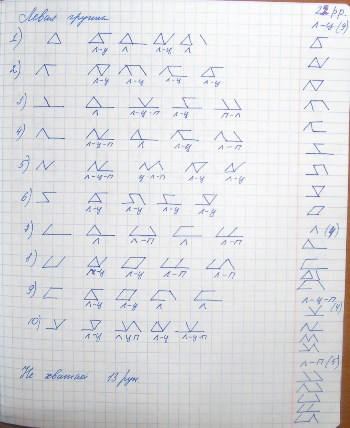 Левая группа
22 р.р.
л-ц (9)
1)
л-у л л-ц л
2)
л-ц л-ц л-ц л-ц
3)
л л-ц-п л-ц п-л
4)
л-ц-п л л-ц л-п
5)
л-ц-п ц-л-п л-ц л-ц
6)
л-ц л-ц л-ц л-ц
7)
л л-п л л-п
л (4)
8)
л-ц л-ц л-п л-п
9)
л-ц л-ц л л
л-ц-п (4)
10)
л-ц л-ц-п л-ц л-ц-п
л-п (5)
Не хватает 13 рун